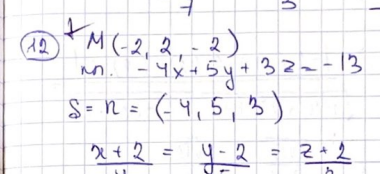 12 M(-2, 2, -2)
пл. -4x+5y+3z=-13
S=n=(-4, 5, 3)
x+2 = y-2 = z+2